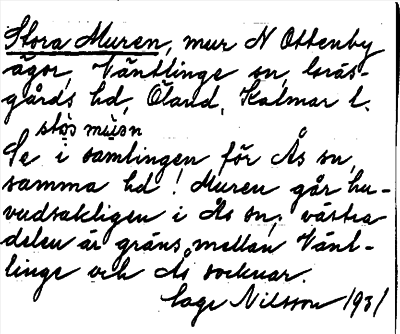 Stora Muren, mur N Ottenby
ägor, Ventlinge sn, Gräs-
gårds hd, Öland, Kalmar l.
stòs mùsn
Se i samlingen för Ås sn,
samma hd! Muren går hu-
vudsakligen i Ås sn, västra
delen är gräns mellan Vent-
linge och Ås socknar.
Åage Nilsson 1931